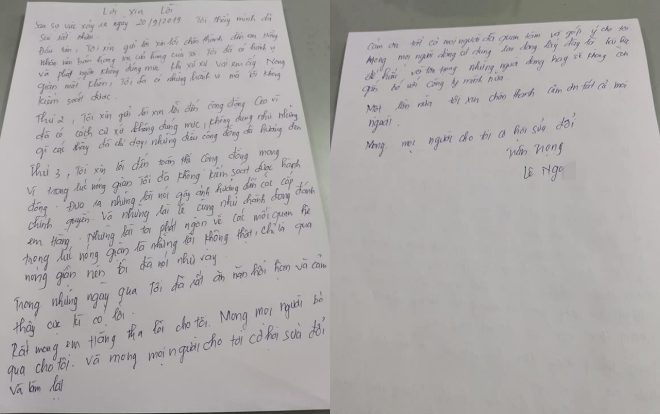 Lời xin Lỗi
Sau sự việc xảy ra ngày 20/9/2019 Tôi thấy mình đã
Sai rất nhiều.
Đầu tiên, Tôi xin gửi lời xin lỗi chân thành đến em Hằng
Nhân viên bán hàng của cửa hàng xe. Tôi đã có hành vi
và phát ngôn không đúng mực khi xử xử với em. Nóng
giận mất khôn, Tôi đã có những hành vi mà tôi không
kiểm soát được.
Thứ 2, Tôi xin gửi lời xin lỗi đến cộng đồng. Cao vì
đã có cách cư xử không đúng mực, không đúng như những
gì các đã chỉ dạy, những điều cộng đồng đã hướng đến
Thứ 3, Tôi xin lỗi đến toàn thể Cộng đồng mạng
Vì trong lúc nóng giận Tôi đã không kiểm soát được hành
động. Đưa ra những lời nói gây ảnh hưởng đến các cấp
chính quyền. Và những lời lẽ cũng như hành động đánh
em Hằng. Những lời tôi phát ngôn về các mối quan hệ
trong lúc nóng giận là những lời không thật, chỉ là quá
nóng giận nên tôi đã nói như vậy.
Trong những ngày qua Tôi đã rất ăn năn hối hận và cảm
thấy cực kì có lỗi.
Rất mong em Hằng tha lỗi cho tôi. Mong mọi người bỏ
qua cho tôi. Và mong mọi người cho tôi cơ hội sửa đổi
và làm lại
Cảm ơn tất cả mọi người đã quan tâm và góp ý cho tôi
Mong mọi người đừng sử dụng lan đây là bài
để hiểu và tôn trọng những người đang hay sẽ không còn
gắn bó với công ty mình nữa.
Một lần nữa tôi xin chân thành cảm ơn tất cả mọi
người.
Mong mọi người cho tôi cơ hội sửa đổi
Trân trọng
Lê Ngọ